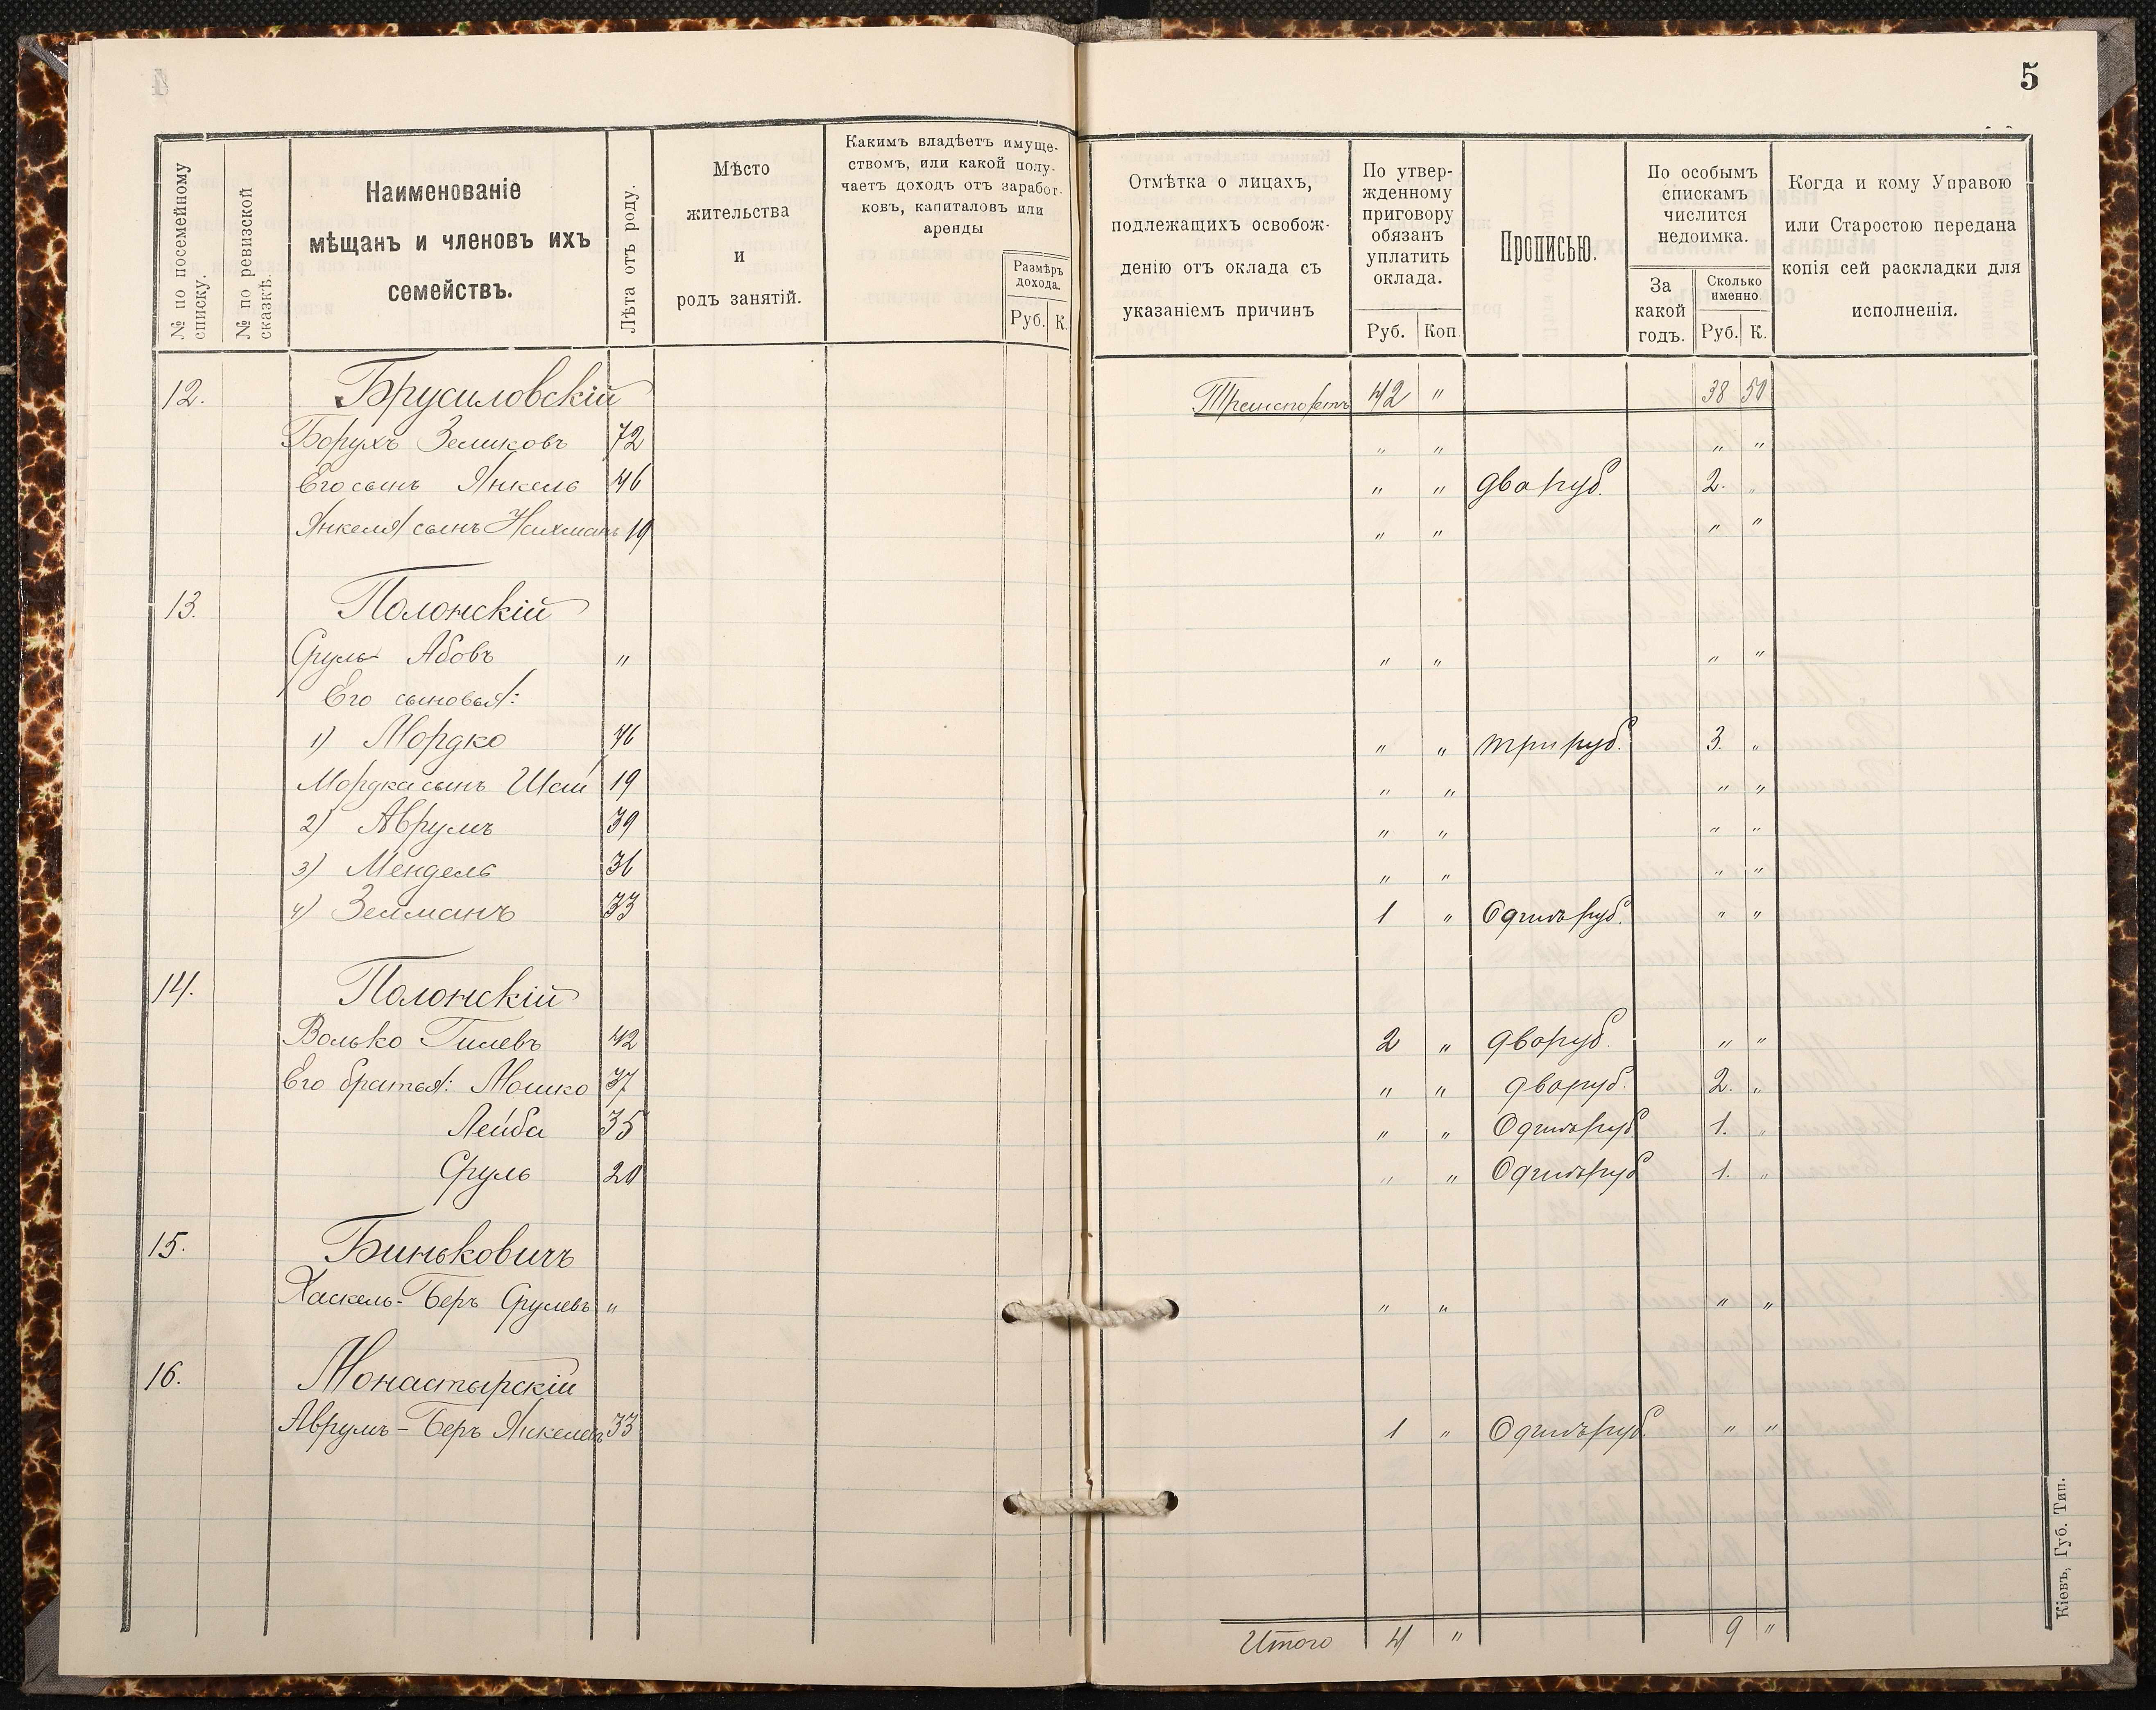 5
№ по посемейному
списку.
№ по ревизской
сказкѣ.
Наименованіе
мѣщанъ и членовъ ихъ
семействъ.
Лѣта отъ роду.
Мѣсто
жительства
и
родъ занятій.
Какимъ владѣетъ имуще-
ствомъ, или какой полу-
чаетъ доходъ отъ заработ-
ковъ, капиталовъ или
аренды
Размѣръ
дохода.
Руб. К.
Отмѣтка о лицахъ,
подлежащихъ освобож-
денію отъ оклада съ
указаніемъ причинъ
По утвер-
жденному
приговору
обязанъ
уплатить
оклада.
Руб. Коп
Прописью.
По особымъ
спискамъ
числится
недоимка.
За
какой
годъ.
Сколько
именно
Руб. К.
Когда и кому Управою
или Старостою передана
копія сей раскладки для
исполненія.
12. Брусиловскій Транспортъ 42 " 38 50
Борухъ Зеликовъ 72 " " " "
Его сынъ Янкель 46 " " два руб. 2. "
Янкеля сынъ Нахманъ 19 " " " "
13. Полонскій
Сруль Абовъ " " " " "
Его сыновья:
1) Мордко 46 " " три руб. 3. "
Мордка сынъ Шай 19 " " " "
2) Аврумъ 39 " " " "
3) Мендель 36 " " " "
4) Зейманъ 33 1 " Одинъ руб. " "
14. Полонскій
Волько Гилевъ 42 2 " два руб. " "
Его братья: Мошко 37 " " два руб. 2. "
Лейба 35 " " Одинъ руб 1. "
Сруль 20 " " Одинъ руб 1. "
15. Биньковичъ
Хаскель-Беръ Срулевъ " " " " "
16. Монастырскій
Аврумъ-Беръ Янкелевъ 33 1 " Одинъ руб. " "
Итого 4 " 9 "
Кіевъ, Губ. Тип.